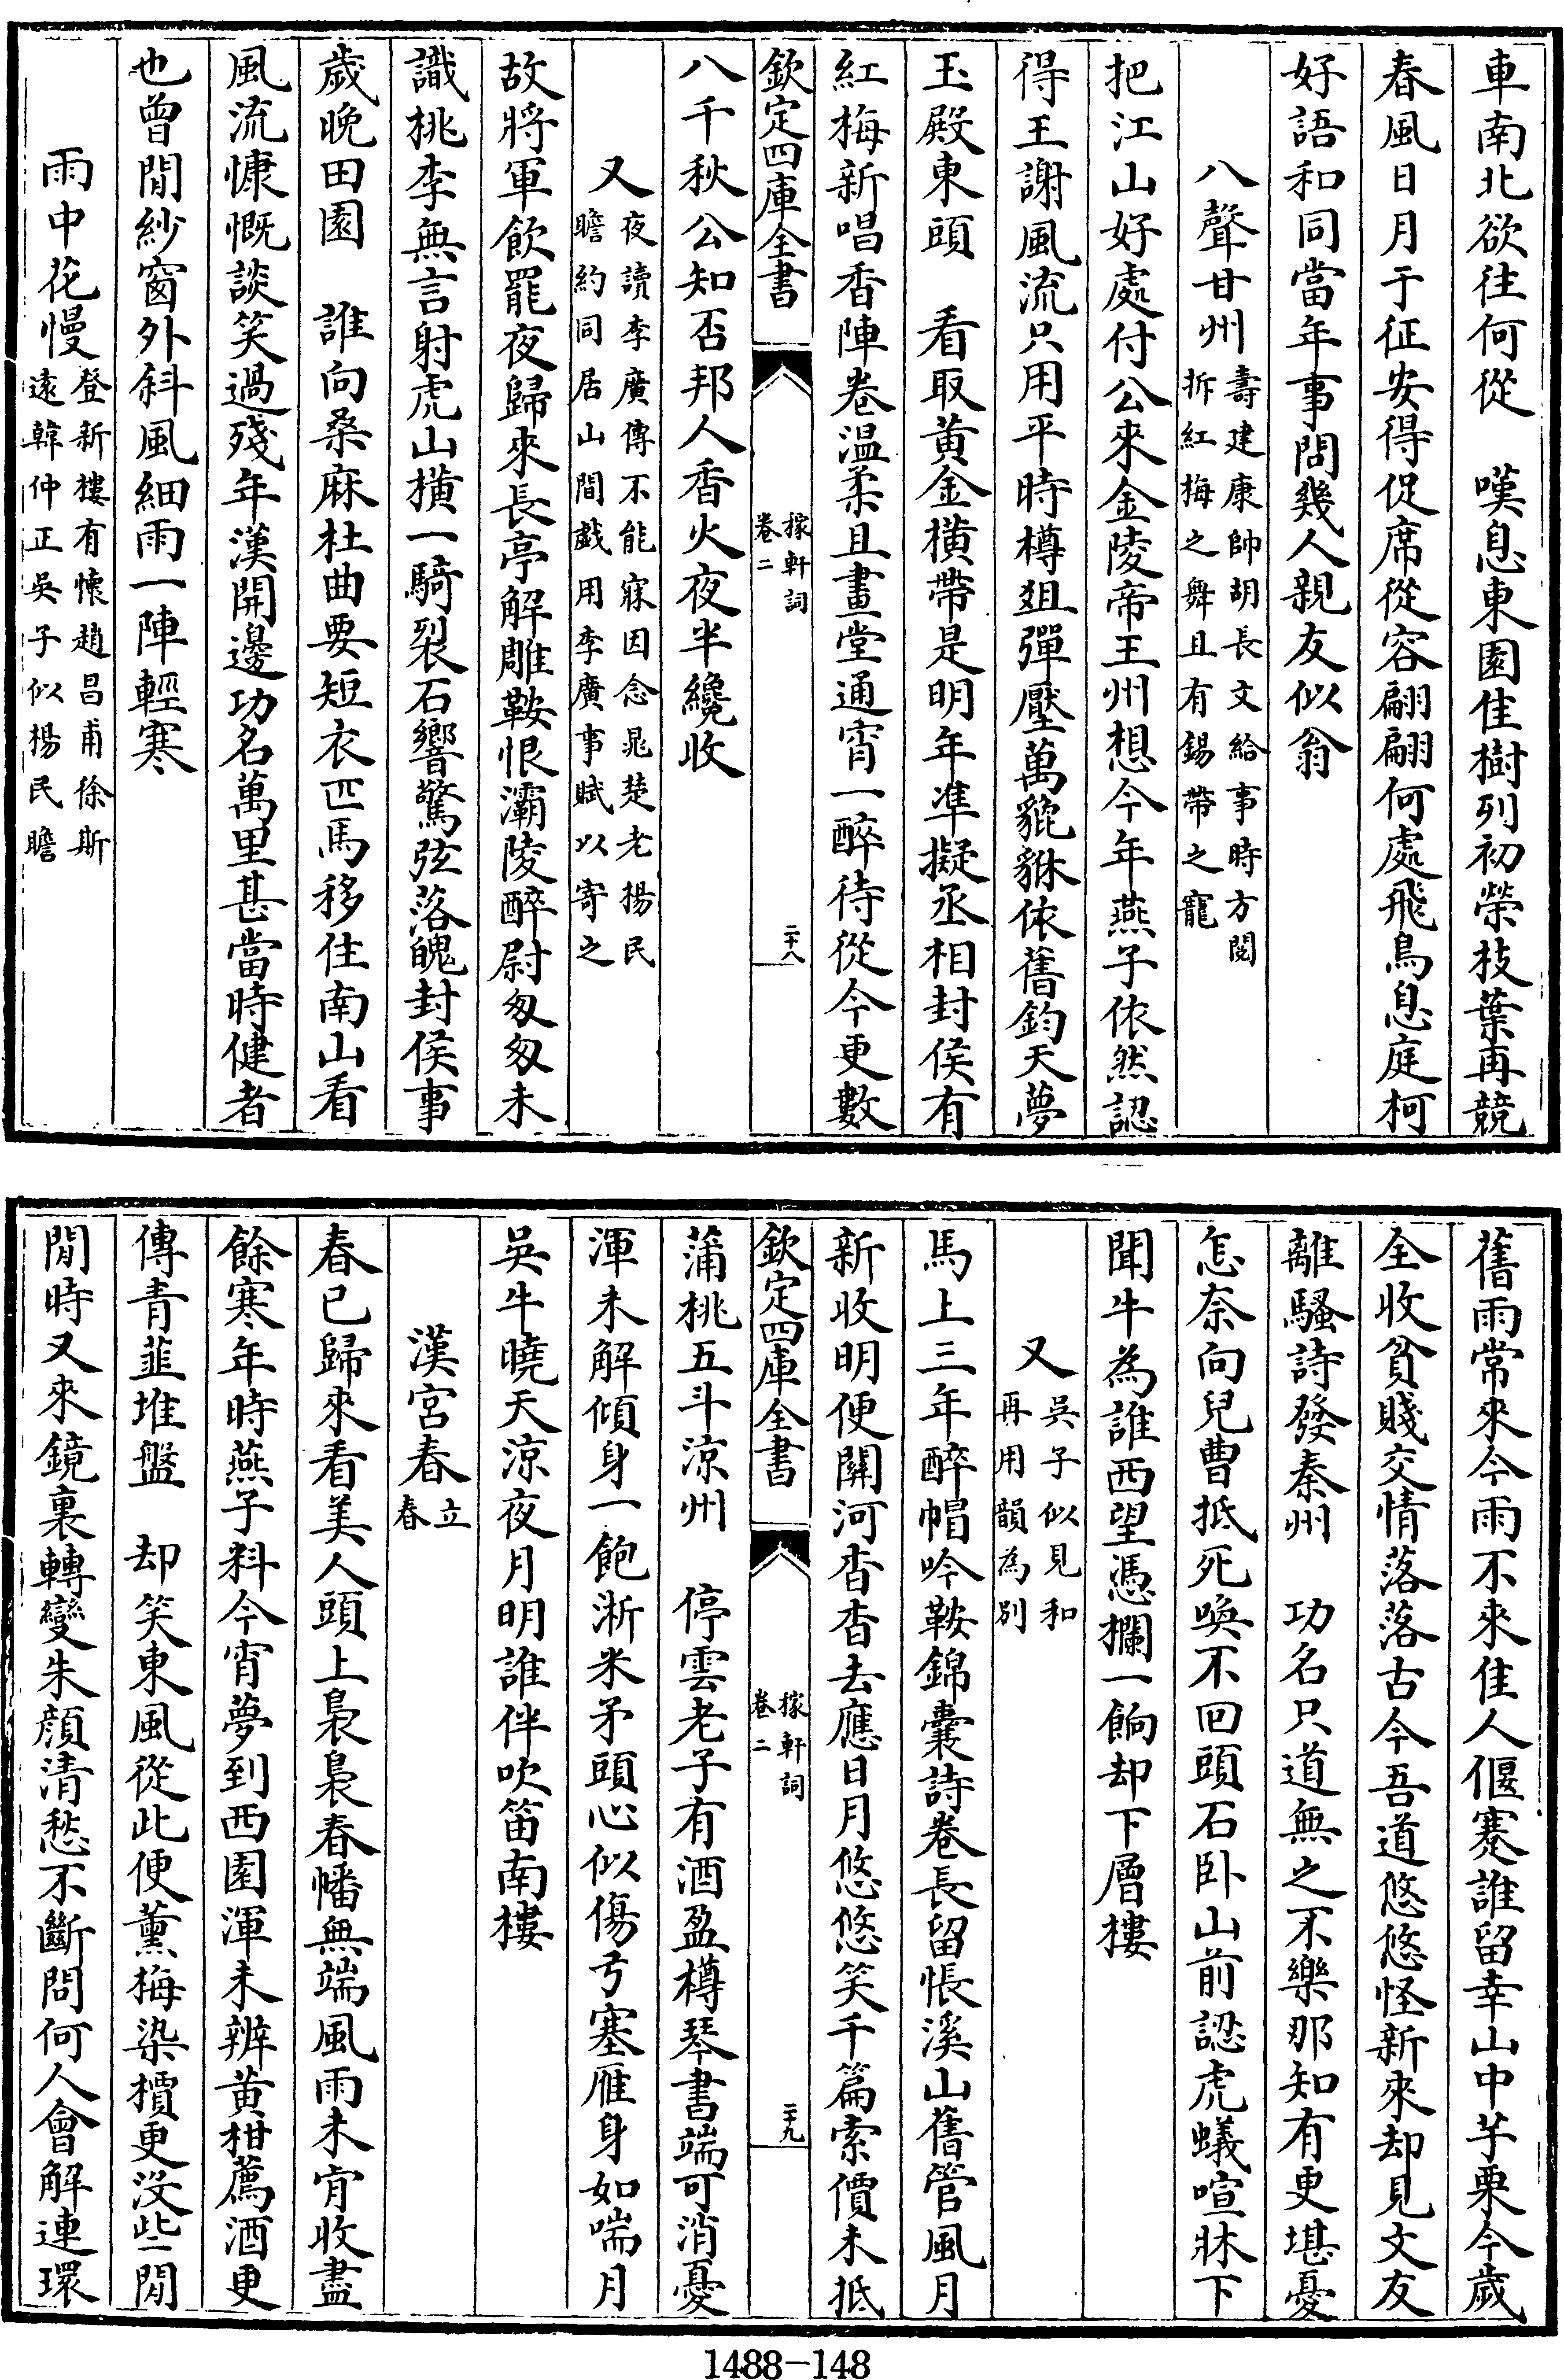 車南北欲往何從　嘆息東園佳樹列初榮枝葉再競
春風日月于征安得促席從容翩翩何處飛鳥息庭柯
好語和同當年事問幾人親友似翁
八聲甘州壽建康帥胡長文給事時方閲
拆紅梅之舞且有錫帶之寵
把江山好處付公來金陵帝王州想今年燕子依然認
得王謝風流只用平時樽俎彈壓萬貔貅依舊鈞天夢
玉殿東頭　看取黄金橫帶是明年凖擬丞相封侯有
紅梅新唱香陣卷温柔且畫堂通宵一醉待從今更數
欽定四庫全書　稼軒詞
卷二　二十八
八千秋公知否邦人香火夜半纔收
又夜讀李廣傳不能寐因念晁楚老楊民
瞻約同居山間戱用李廣事賦以寄之
故將軍飲罷夜歸來長亭解雕鞍恨灞陵醉尉匆匆未
識桃李無言射虎山橫一騎裂石響驚弦落魄封侯事
歲晚田園　誰向桑麻杜曲要短衣匹馬移住南山看
風流慷慨談笑過殘年漢開邊功名萬里甚當時健者
也曾閒紗窗外斜風細雨一陣輕寒
雨中花慢登新樓有懷趙昌甫徐斯
遠韓仲正吳子似楊民瞻
舊雨常來今雨不來佳人偃蹇誰留幸山中芋栗今歲
全收貧賤交情落落古今吾道悠悠怪新來却見文友
離騷詩發秦州　功名只道無之不樂那知有更堪憂
怎奈向兒曹抵死喚不回頭石卧山前認虎蟻喧牀下
聞牛為誰西望憑欄一餉却下層樓
又吳子似見和
再用韻為别
馬上三年醉帽吟鞍錦囊詩卷長留悵溪山舊管風月
新收明便關河杳杳去應日月悠悠笑千篇索價未抵
欽定四庫全書　稼軒詞
卷二　二十九
蒲桃五斗涼州　停雲老子有酒盈樽琴書端可消憂
渾未解傾身一飽淅米矛頭心似傷弓塞雁身如喘月
吳牛曉天涼夜月明誰伴吹笛南樓
漢宮春立
春
春已歸來看美人頭上裊裊春幡無端風雨未肯收盡
餘寒年時燕子料今宵夢到西園渾未辨黄柑薦酒更
傳青韮堆盤　却笑東風從此便薰梅染櫝更沒些閒
閒時又來鏡裏轉變朱顔清愁不斷問何人會解連環
1488-148